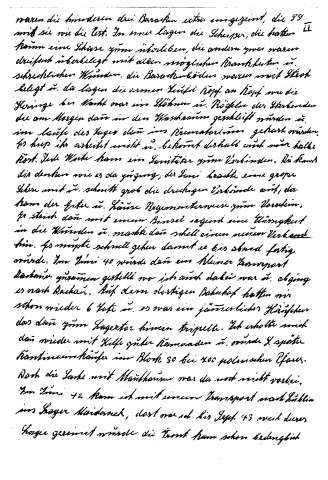 waren die hinderen drei Baracken extra eingezeint, die SS
II
mit sie wie die Pest. In einer lagen die Scheisser, die hatten
kaum eine Chase zum überleben, die andern zwei waren
dreifach überbelegt mit allen möglichen Krankheiten u.
schrecklichen Wunden, die Barackenböden waren mit Stroh
belegt u. da lagen die armen Teufel Kopf an Kopf wie die
Heringe bei Nacht war ein Stöhnen u. Röcheln der Sterbenden
die am Morgen dan in den Waschraum geschleift wurden u.
im laufe des Tages dan ins Krematorium gekarrt wurden.
Es hiep ihr arbeitet nicht u. bekomt deshalb auch nur halbe
Kost. Jede Woche kam ein Sanitäter zum Verbinden. Da kanst
dir denken wie es da zuging, der Jani brachte eine grope
Schere mit u. schnitt grob die dreckigen Verbände auf, da
kam der Eiter u. Läuse Regimenterweise zum Vorschein.
Er strich dan mit einem Pinsel irgend eine Flüssigkeit
in die Wunden u. machte dan schnell einen neuen Verband
hin. Es mupte schnell gehen damit er bis abend fertig
wurde. Im Juni 40 wurde dan ein kleiner Transport
Dachau zusamen gestellt wo ich auch dabei war u. abging
es nach Dachau. Auf dem dortigen Bahnhof hatten wir
schon wieder 6 Tote u. es war ein jämmerliches Häufchen
das dan zum Lagertor hinein trippelte. Ich erholte mich
dan wieder mit Hilfe guter Kameraden u. wurde später
Kantineneinkäufer im Block 30 bei 200 polnischen Pfarer.
Doch die Sache mit Mauthausen war da noch nicht vorbei.
Im Juni 42 kam ich mit einem Transport nach Lublin
ins Lager Maidanek, dort war ich bis Sept. 43 weil dieses
Lager geräumt wurde die Front kam schon bedenglich